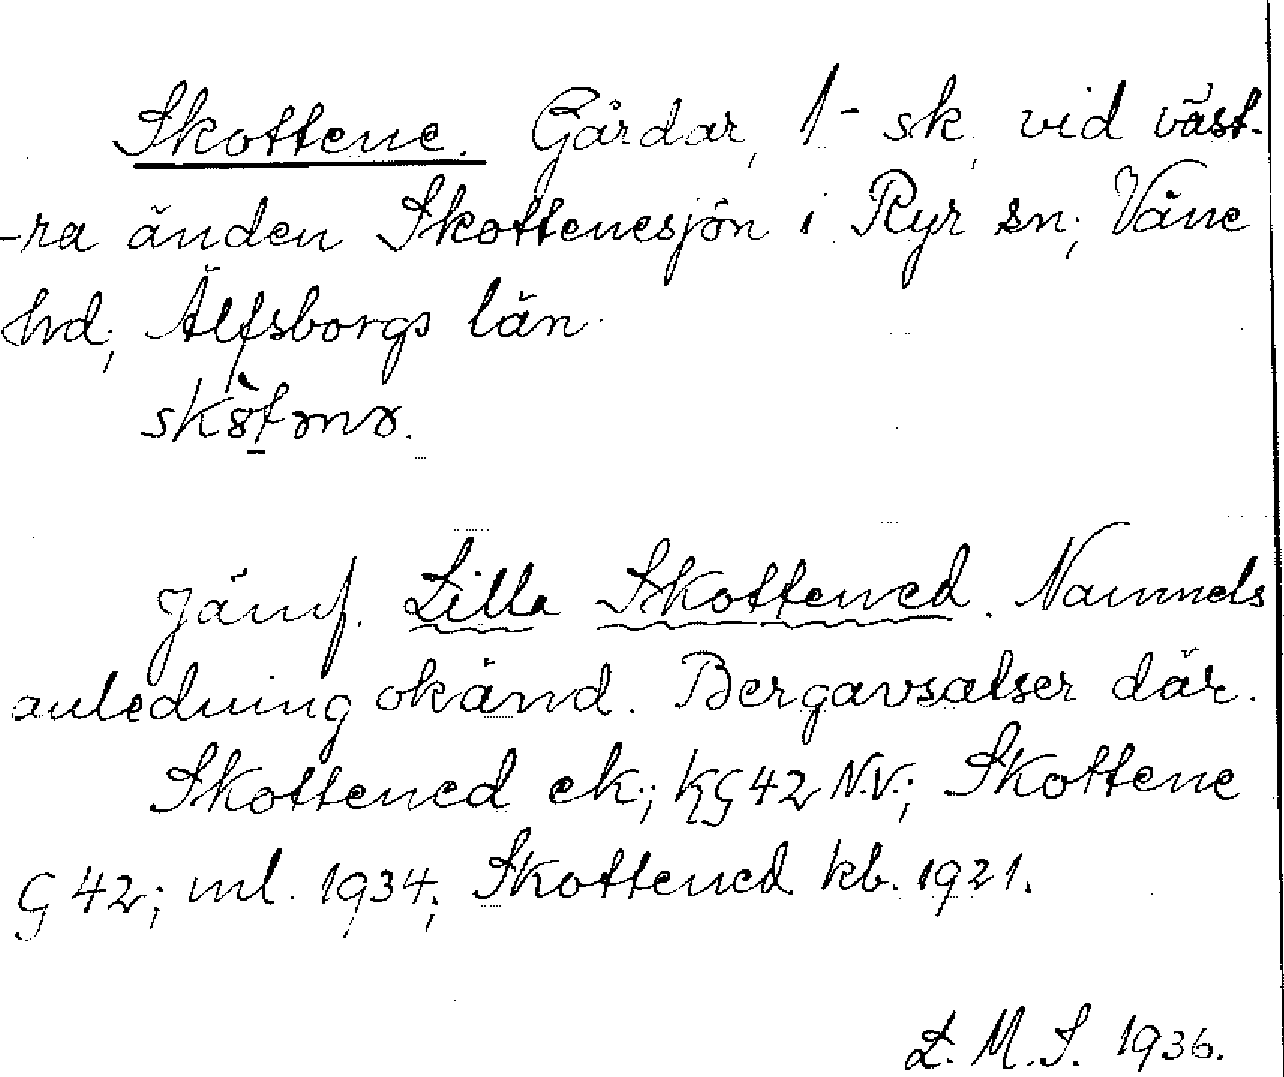 Skottene. Gårdar, 1 - sk, vid väst-
-ra änden Skottenesjön i Ryr sn; Väne
hd; Älfsborgs län.
Jämf. Lilla Skottened. Namnets
anledning okänd. Bergavsatser där.
Skottened ek; kG 42 N.V.; Skottene
G 42; ml. 1934; Skottened kb. 1921.
L. M. S. 1936.